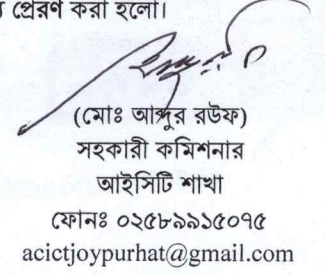 প্রেরণ করা হলো।
(মোঃ আব্দুর রউফ)
সহকারী কমিশনার
আইসিটি শাখা
ফোনঃ ০২৫৮৯৯১৫০৭৫
acictjoypurhat@gmail.com